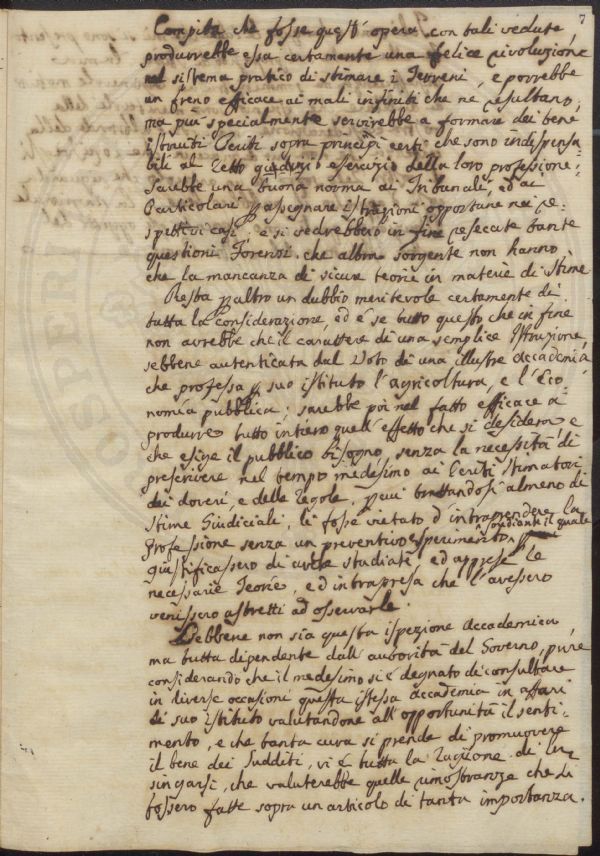 7
Compita che fosse quest' opera con tali vedute,
produrrebbe essa certamente una felice rivoluzione
nel sistema pratico di stimare i Terreni, e porrebbe
un freno efficace ai mali infiniti che ne resultano,
ma piu specialmente servirebbe a formare dei bene
istruiti Periti sopra principj certi che sono indispensa:
bili al retto giudizio esercizio della loro professione:
sarebbe una buona norma ai Tribunali, ed ai
Particolari p assegnare istruzioni opportune nei re:
spettivi casi, e si vedrebbero in fine resecate tante
questioni Forensi, che altra sorgente non hanno
che la mancanza di sicure teorie in materie di stime
Resta p altro un dubbio meritevole certamente di
tutta la considerazione, ed é se tutto questo che in fine
non avrebbe che il carattere di una semplice Istruzione
sebbene autenticata dal Voto di una illustre Accademia
che professa p suo istituto l'agricoltura, e l'Eco:
nomia pubblica; sarebbe poi nel fatto efficace a
produrre tutto intiero quell' effetto che si desidera e
che esige il pubblico bisogno, senza la necessità di
prescrivere nel tempo medesimo ai Periti Stimatori
dei doveri, e delle regole, p cui trattandosi almeno di
Stime Giudiciali, li fosse vietato d' intraprendere la
professione senza un preventivo esperimento mediante il quale
giustificassero di avere studiate, ed apprese le
necessarie Teorie, ed intrapresa che l'avessero
venissero astretti ad osservarle.
Sebbene non sia questa ispezione Accademica
ma tutta dipendente dall' autorità del Governo, pure
considerando che il medesimo si é degnato di consultare
in diverse occasioni questa istessa accademia in affari
di suo istituto valutandone all' opportunità il senti:
mento, e che tanta cura si prende di promuovere
il bene dei Sudditi, vi é tutta la ragione di lu
singarsi, che valuterebbe quelle rimostranze che li
fossero fatte sopra un articolo di tanta importanza.